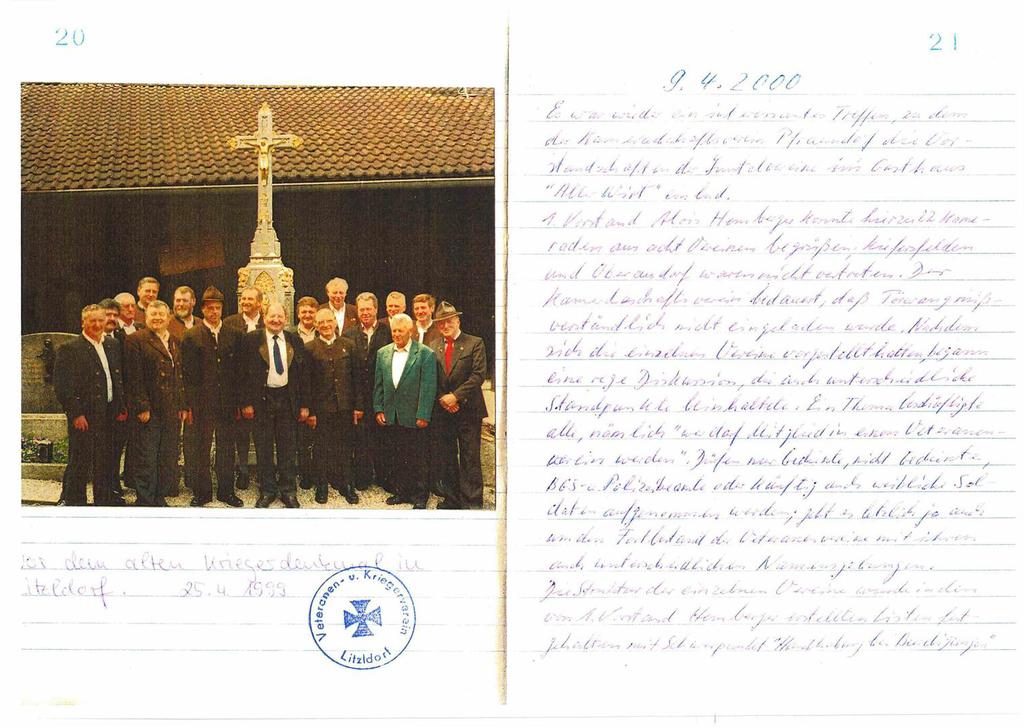 20
dem alten Kriegerdenkmal in
Litzldorf. 25.4.1999
Veteranen- u. Kriegerverein
Litzldorf
21
9.4.2000
Es war wieder ein int Treffen, zu dem
der Kameradschaftsverein die Vor-
standschaften der Inntalvereine ins Gasthaus
"Alter Wirt" einlud.
1. Vorstand Alois Hamberger konnte hierzu Kame-
raden aus acht Vereinen begrüßen, Kiefersfelden
und Oberaudorf waren nicht vertreten. Der
Kameradschaftsverein bedauert, daß Törwang miß-
verständlich nicht eingeladen wurde. Nachdem
sich die einzelnen Vereine vorgestellt hatten, begann
eine rege Diskussion, die auch unterschiedliche
Standpunkte beinhaltete. Ein Thema beschäftigte
alle, nämlich "wer darf Mitglied in einem Veteranen-
verein werden". Dürfen nur gediente, nicht gediente,
BGS- u. Polizeibeamte oder künftig auch weibliche Sol-
daten aufgenommen werden; geht es letztlich ja auch
um den Fortbestand der Veteranenvereine mit ihren
auch unterschiedlichen Namensgebungen.
Die Struktur der einzelnen Vereine wurde in den
von 1. Vorstand Hamberger erstellten Listen fest-
gehalten mit Schwerpunkt "Handhabung bei Beerdigungen"